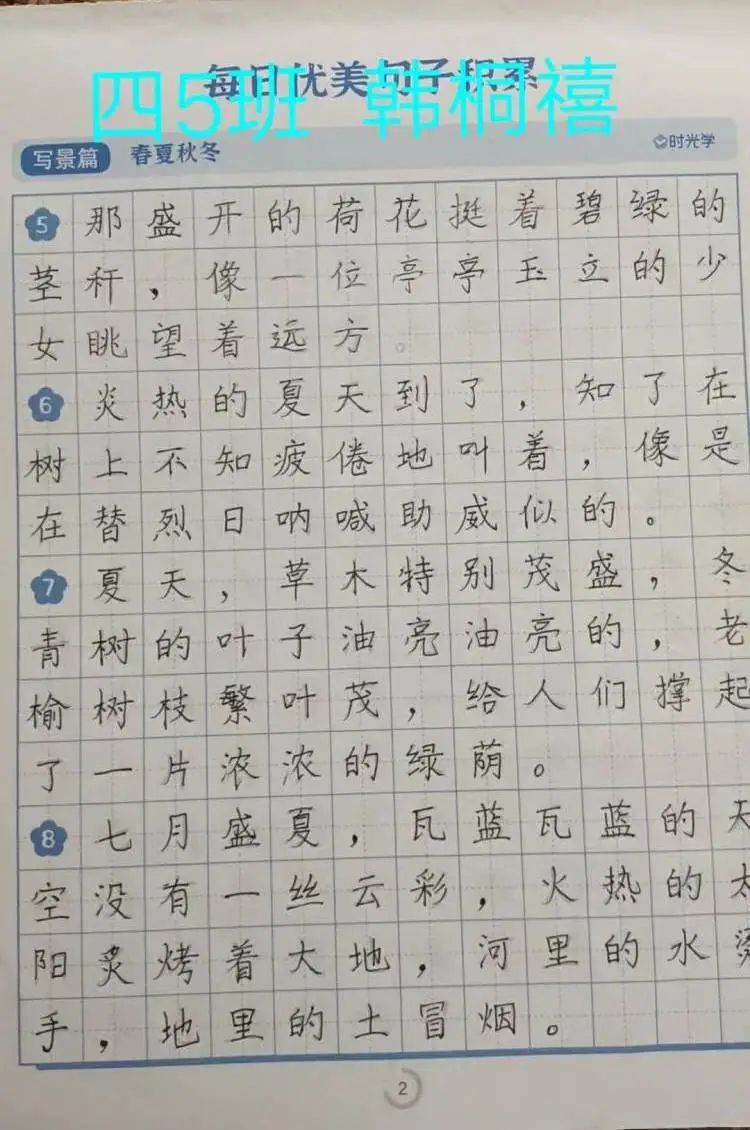 每日优美句子积累
四5班 韩桐禧
写景篇 春夏秋冬 时光学
5 那盛开的荷花挺着碧绿的
茎秆，像一位亭亭玉立的少
女眺望着远方。
6 炎热的夏天到了，知了在
树上不知疲倦地叫着，像是
在替烈日呐喊助威似的。
7 夏天，草木特别茂盛，冬
青树的叶子油亮油亮的，老
榆树枝繁叶茂，给人们撑起
了一片浓浓的绿荫。
8 七月盛夏，瓦蓝瓦蓝的天
空没有一丝云彩，火热的太
阳炙烤着大地，河里的水烫
手，地里的土冒烟。
2